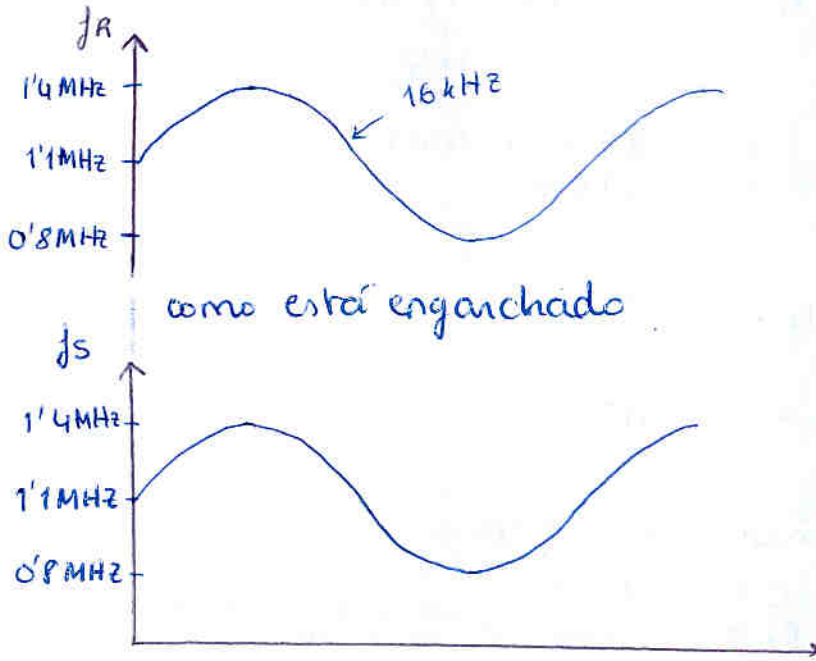 fR
1'4 MHz
16 kHz
1'1 MHz
0'8 MHz
como está enganchado
fs
1'4 MHz
1'1 MHz
0'8 MHz